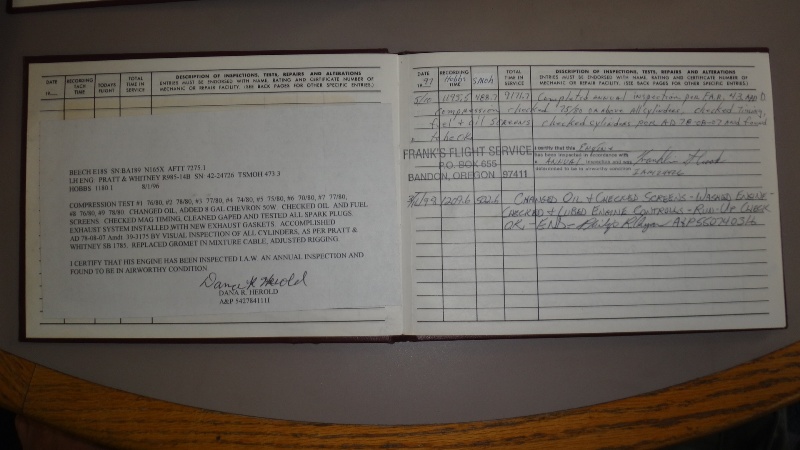 DATE
19
RECORDING
TACH
TIME
TODAYS
FLIGHT
TOTAL
TIME IN
SERVICE
DESCRIPTION OF INSPECTIONS, TESTS, REPAIRS AND ALTERATIONS
ENTRIES MUST BE ENDORSED WITH NAME, RATING AND CERTIFICATE NUMBER OF
MECHANIC OR REPAIR FACILITY. (SEE BACK PAGES FOR OTHER SPECIFIC ENTRIES.)
BEECH E18S SN BA189 N16SX AFTT 7275.1
LH ENG PRATT & WHITNEY R985-14B SN 42-24726 TSMOH 473.3
HOBBS 1180.1 8/1/96
COMPRESSION TEST #1 76/80, #2 78/80, #3 77/80, #4 74/80, #5 75/80, #6 70/80, #7 77/80,
#8 76/80, #9 78/80 CHANGED OIL, ADDED 8 GAL CHEVRON 50W CHECKED OIL AND FUEL
SCREENS, CHECKED MAG TIMING, CLEANED GAPED AND TESTED ALL SPARK PLUGS.
EXHAUST SYSTEM INSTALLED WITH NEW EXHAUST GASKETS ACCOMPLISHED
AD 78-08-07 Amdt 39-3175 BY VISUAL INSPECTION OF ALL CYLINDERS, AS PER PRATT &
WHITNEY SB 1785, REPLACED GROMET IN MIXTURE CABLE, ADJUSTED RIGGING.
I CERTIFY THAT HIS ENGINE HAS BEEN INSPECTED I.A.W. AN ANNUAL INSPECTION AND
FOUND TO BE IN AIRWORTHY CONDITION
Dana R Herold
DANA R. HEROLD
A&P 5427841111
DATE
19 97
RECORDING
Hobbs
TIME
SMOH
TOTAL
TIME IN
SERVICE
DESCRIPTION OF INSPECTIONS, TESTS, REPAIRS AND ALTERATIONS
ENTRIES MUST BE ENDORSED WITH NAME, RATING AND CERTIFICATE NUMBER OF
MECHANIC OR REPAIR FACILITY. (SEE BACK PAGES FOR OTHER SPECIFIC ENTRIES.)
5/10 1195.5 488.7 Completed annual inspection per F.A.R. 43 App D
compression checked 75/80 or above all cylinders. checked timing,
fuel + oil screens checked cylinders per AD 78-08-07 and found
to be ok
FRANK'S FLIGHT SERVICE
P.O. BOX 655
BANDON, OREGON 97411
I certify that this ENGINE
has been inspected in accordance with
a ANNUAL inspection and was
determined to be in airworthy condition
1209.6 502.6 CHANGED OIL + CHECKED SCREENS - WASHED ENGINE -
CHECKED + LUBED ENGINE CONTROLS - RUN-UP CHECK
OK - END -